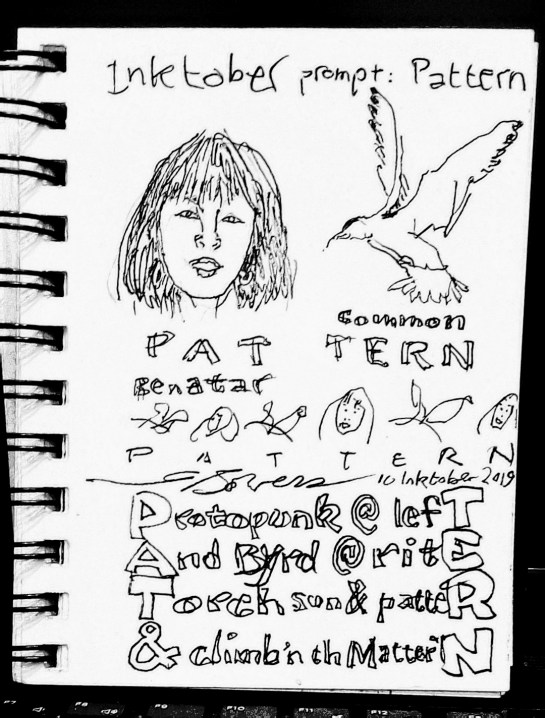 Inktober prompt: Pattern
common
PAT TERN
Benatar
PATTERN
10 Inktober 2019
Protopunk @ lefT
And Byrd @ ritE
Torch son & patteR
& climb'n th Matter'N
F7 F8 F9 F10 F11 F12